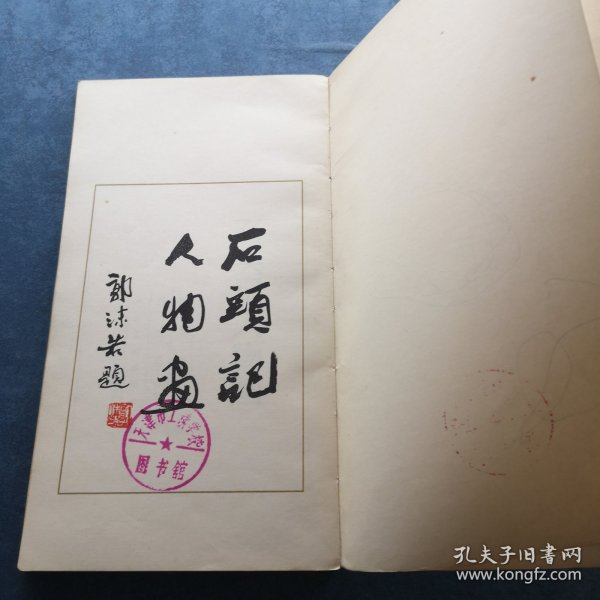 石頭記
人物画
郭沫若題
图书馆
孔夫子旧书网
www.kongfz.com